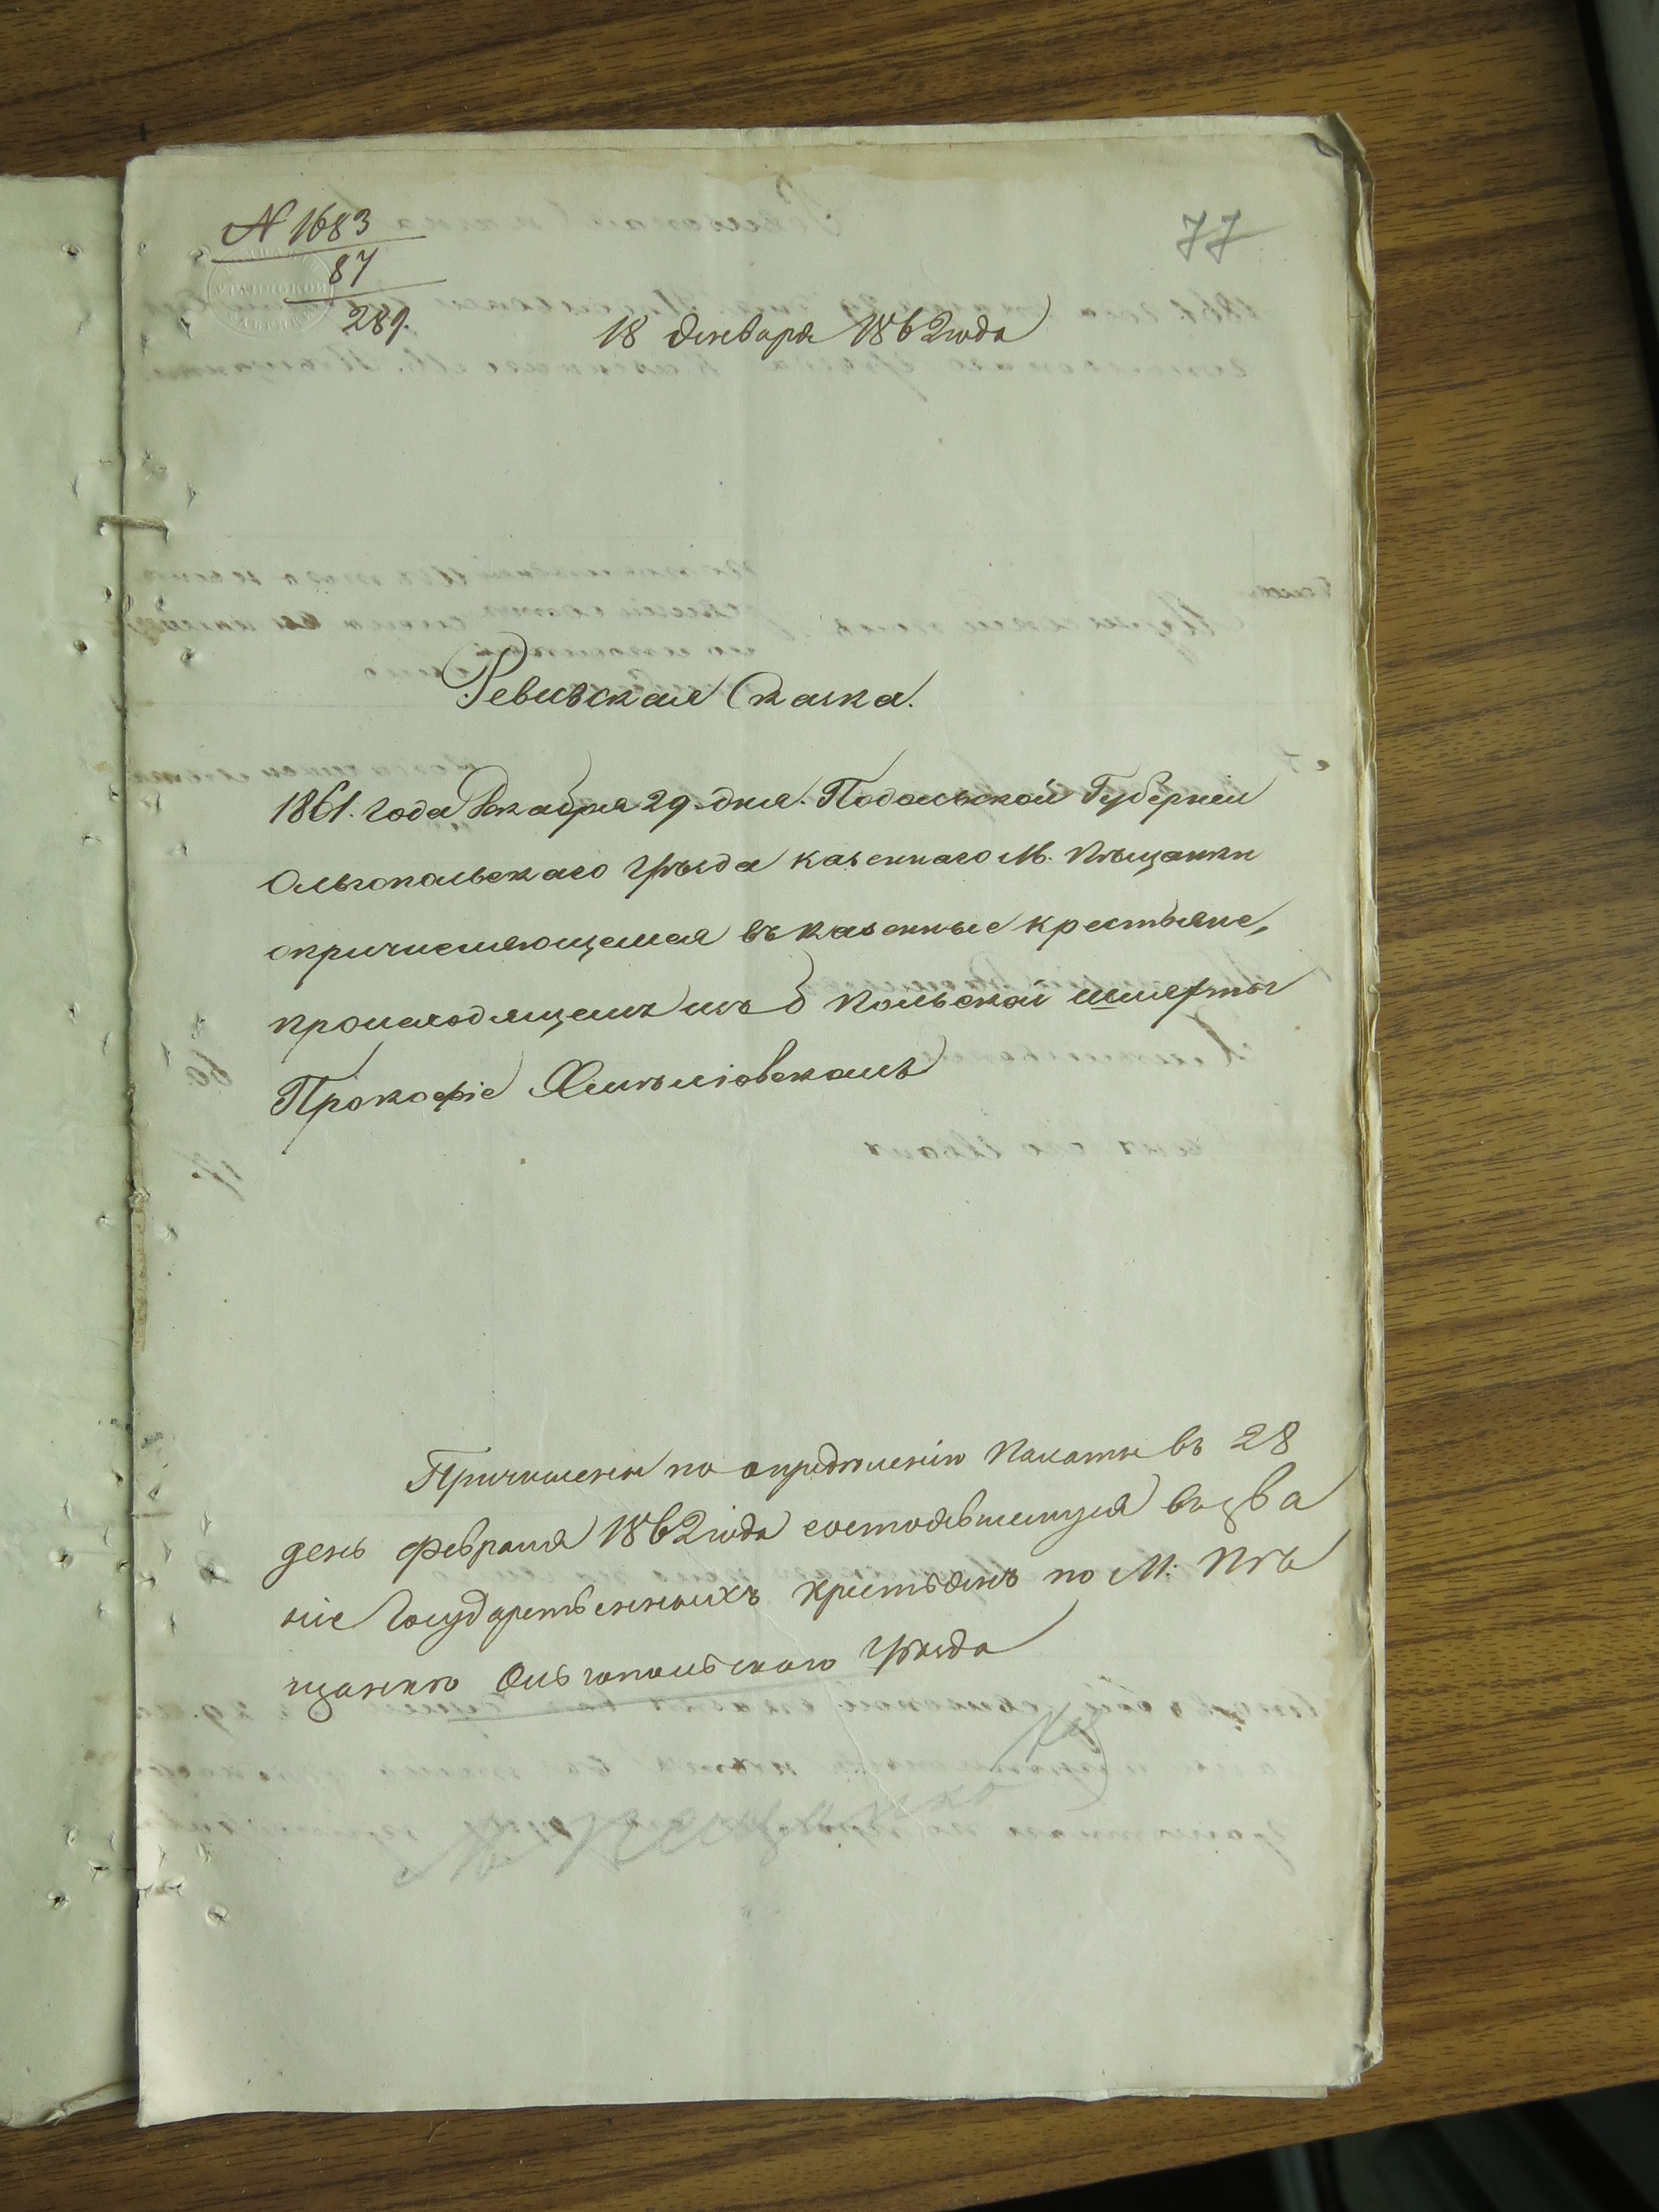 N 1683
87
289.
77
18 Января 1862 года
Ревизская Сказка.
1861. года Декабря 29. дня. Подольской Губернии
Ольгопольскаго Уѣзда казеннаго М. Пѣщанки
опричисляющемся въ казенные крестьяне,
происходящемъ изъ б Польской шляхты
Прокофіе Хмѣліовскомъ
Причислены по опредѣленію Палаты въ 28
день февраля 1862 года состоявшемуся въ зва
ніе Государственныхъ крестьянъ по М. Пѣ
щанкѣ Ольгопольскаго Уѣзда